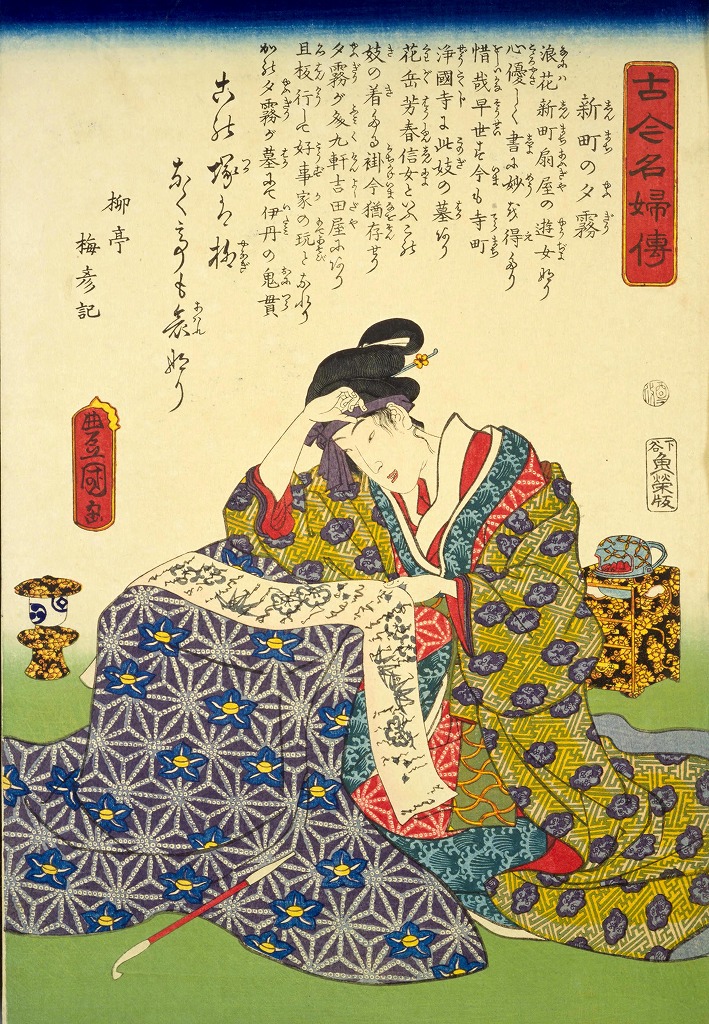 古今名婦傳
新町の夕霧
浪花新町扇屋の遊女なり
心優しく書に妙を得たり
惜哉早世す今も寺町
浄國寺に此妓の墓あり
花岳芳春信女といふこの
妓の着たる裲今猶存せり
夕霧が文九軒吉田屋にあり
且板行して好事家の玩となれり
かの夕霧が墓にて伊丹の鬼貫
この塚は柳
なくても哀なり
柳亭
梅彦記
豊国画
下谷
魚榮版